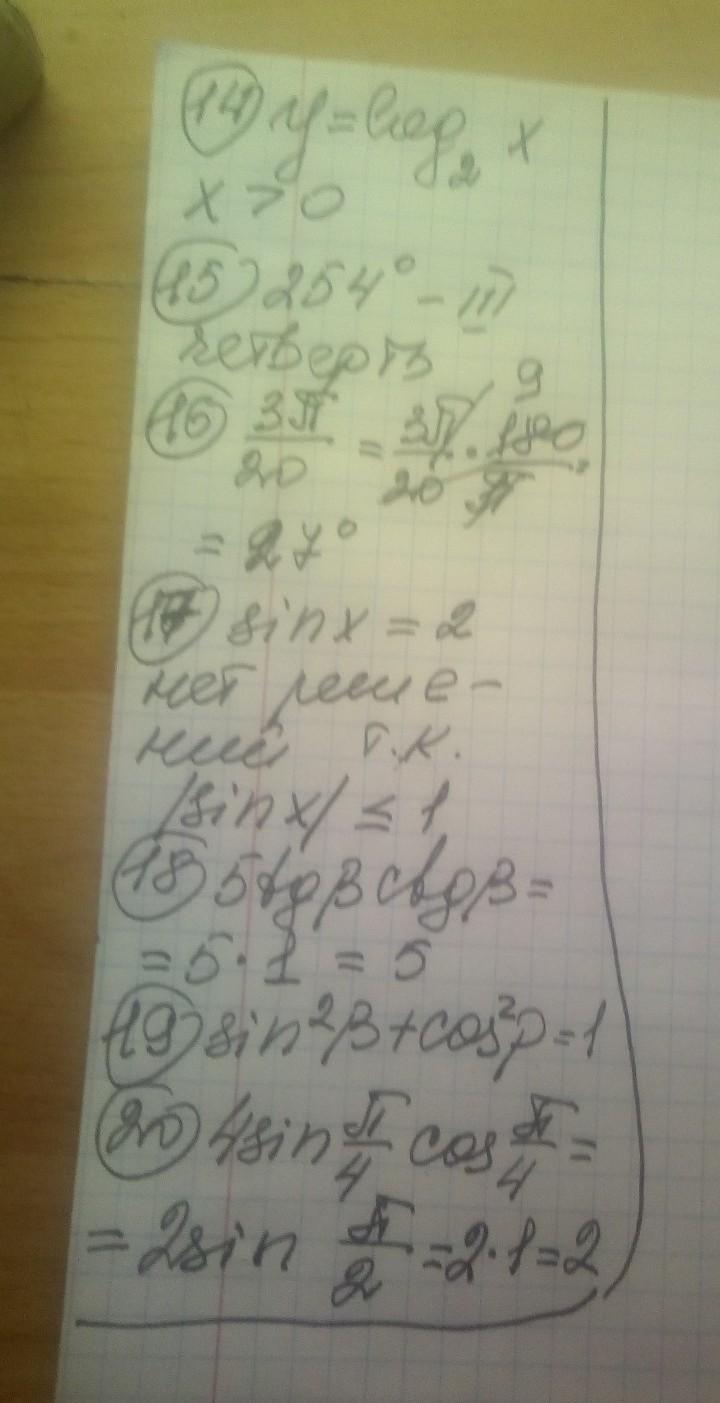 14 y = log₂ x
x > 0
15 254° – III
четверть
16 3π/20 = 3π/20 · 180/π = 9
= 27°
17 sin x = 2
нет реше–
ний т.к.
|sin x| ≤ 1
18 5tgβ ctgβ =
= 5 · 1 = 5
19 sin²β + cos²β = 1
20 4sin π/4 cos π/4 =
= 2sin π/2 = 2 · 1 = 2